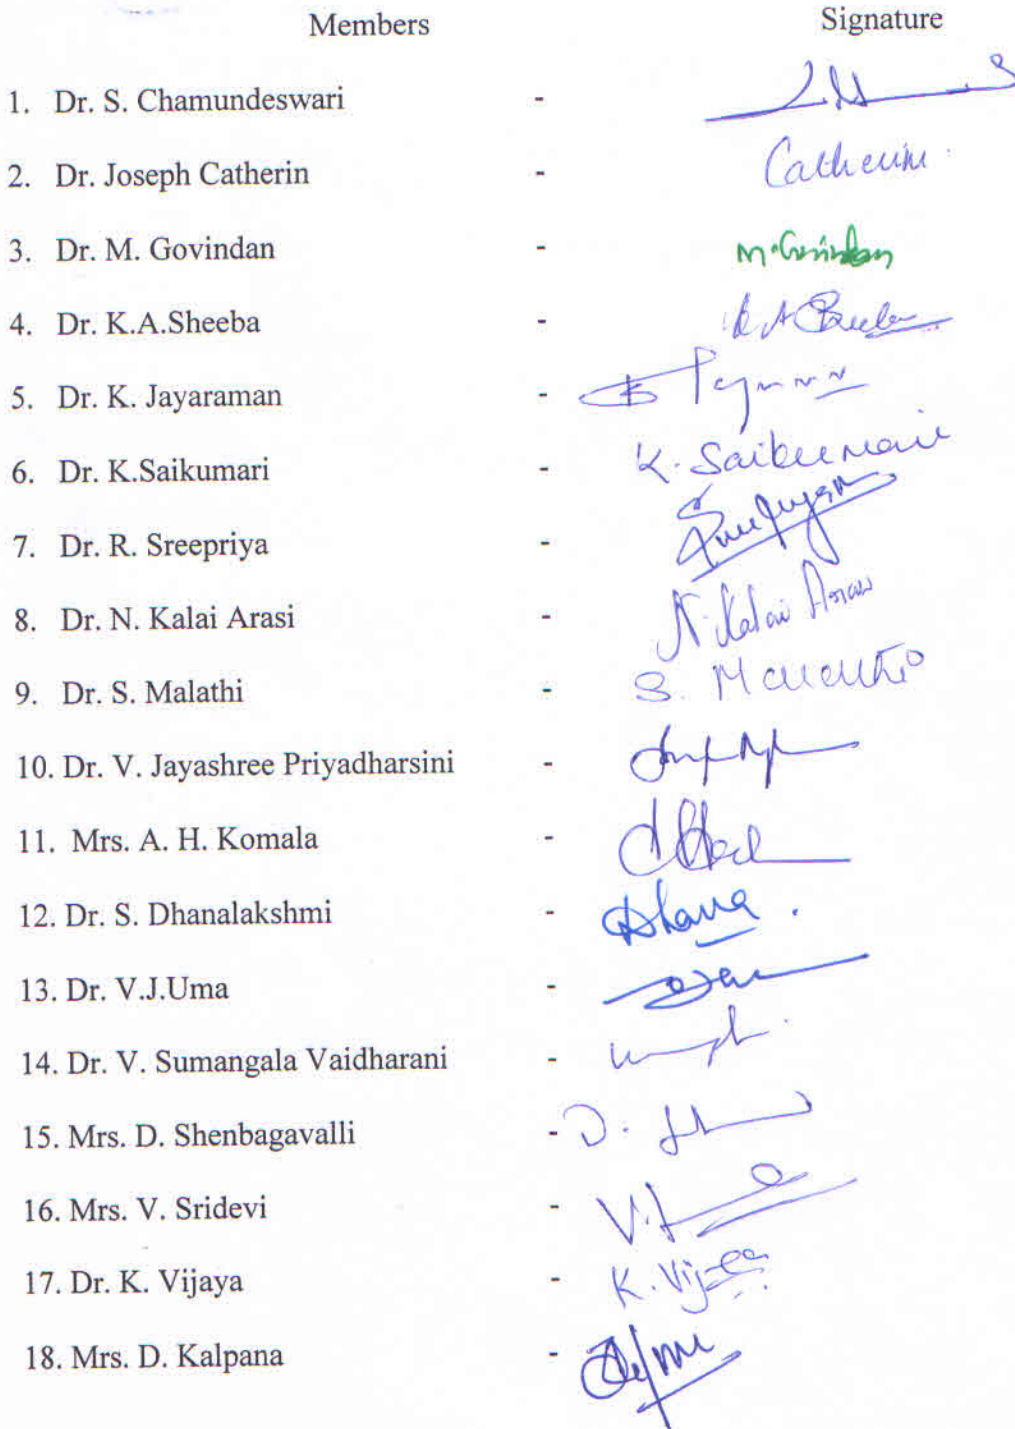 Members Signature
1. Dr. S. Chamundeswari -
2. Dr. Joseph Catherin - Catherine
3. Dr. M. Govindan - M. Govindan
4. Dr. K.A.Sheeba - K A Sheeba
5. Dr. K. Jayaraman -
6. Dr. K.Saikumari - K. Saikumari
7. Dr. R. Sreepriya -
8. Dr. N. Kalai Arasi - N. Kalai Arasi
9. Dr. S. Malathi - S. Malathi
10. Dr. V. Jayashree Priyadharsini -
11. Mrs. A. H. Komala -
12. Dr. S. Dhanalakshmi - Dhana.
13. Dr. V.J.Uma -
14. Dr. V. Sumangala Vaidharani -
15. Mrs. D. Shenbagavalli - D.
16. Mrs. V. Sridevi -
17. Dr. K. Vijaya - K. Vijaya
18. Mrs. D. Kalpana -